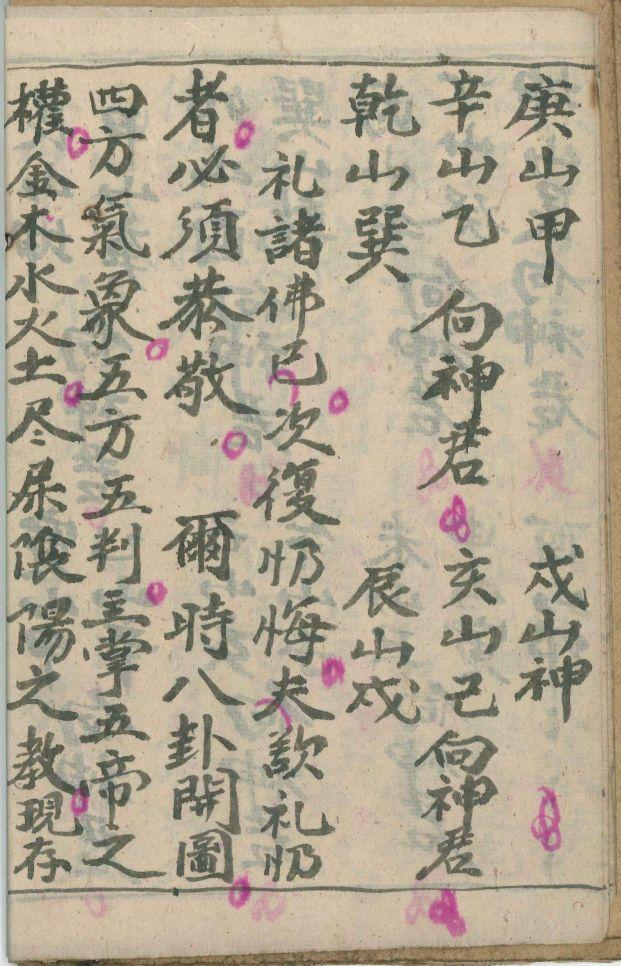 庚山甲 戌山神
辛山乙 向神君 亥山己向神君
乾山巽 辰山戍
礼諸佛已次復忉悔夫歎礼忉
者必須恭敬 爾時八卦開圖
四方氣象五方五判主掌五帝之
權金木水火土尽屎陰陽之教現存